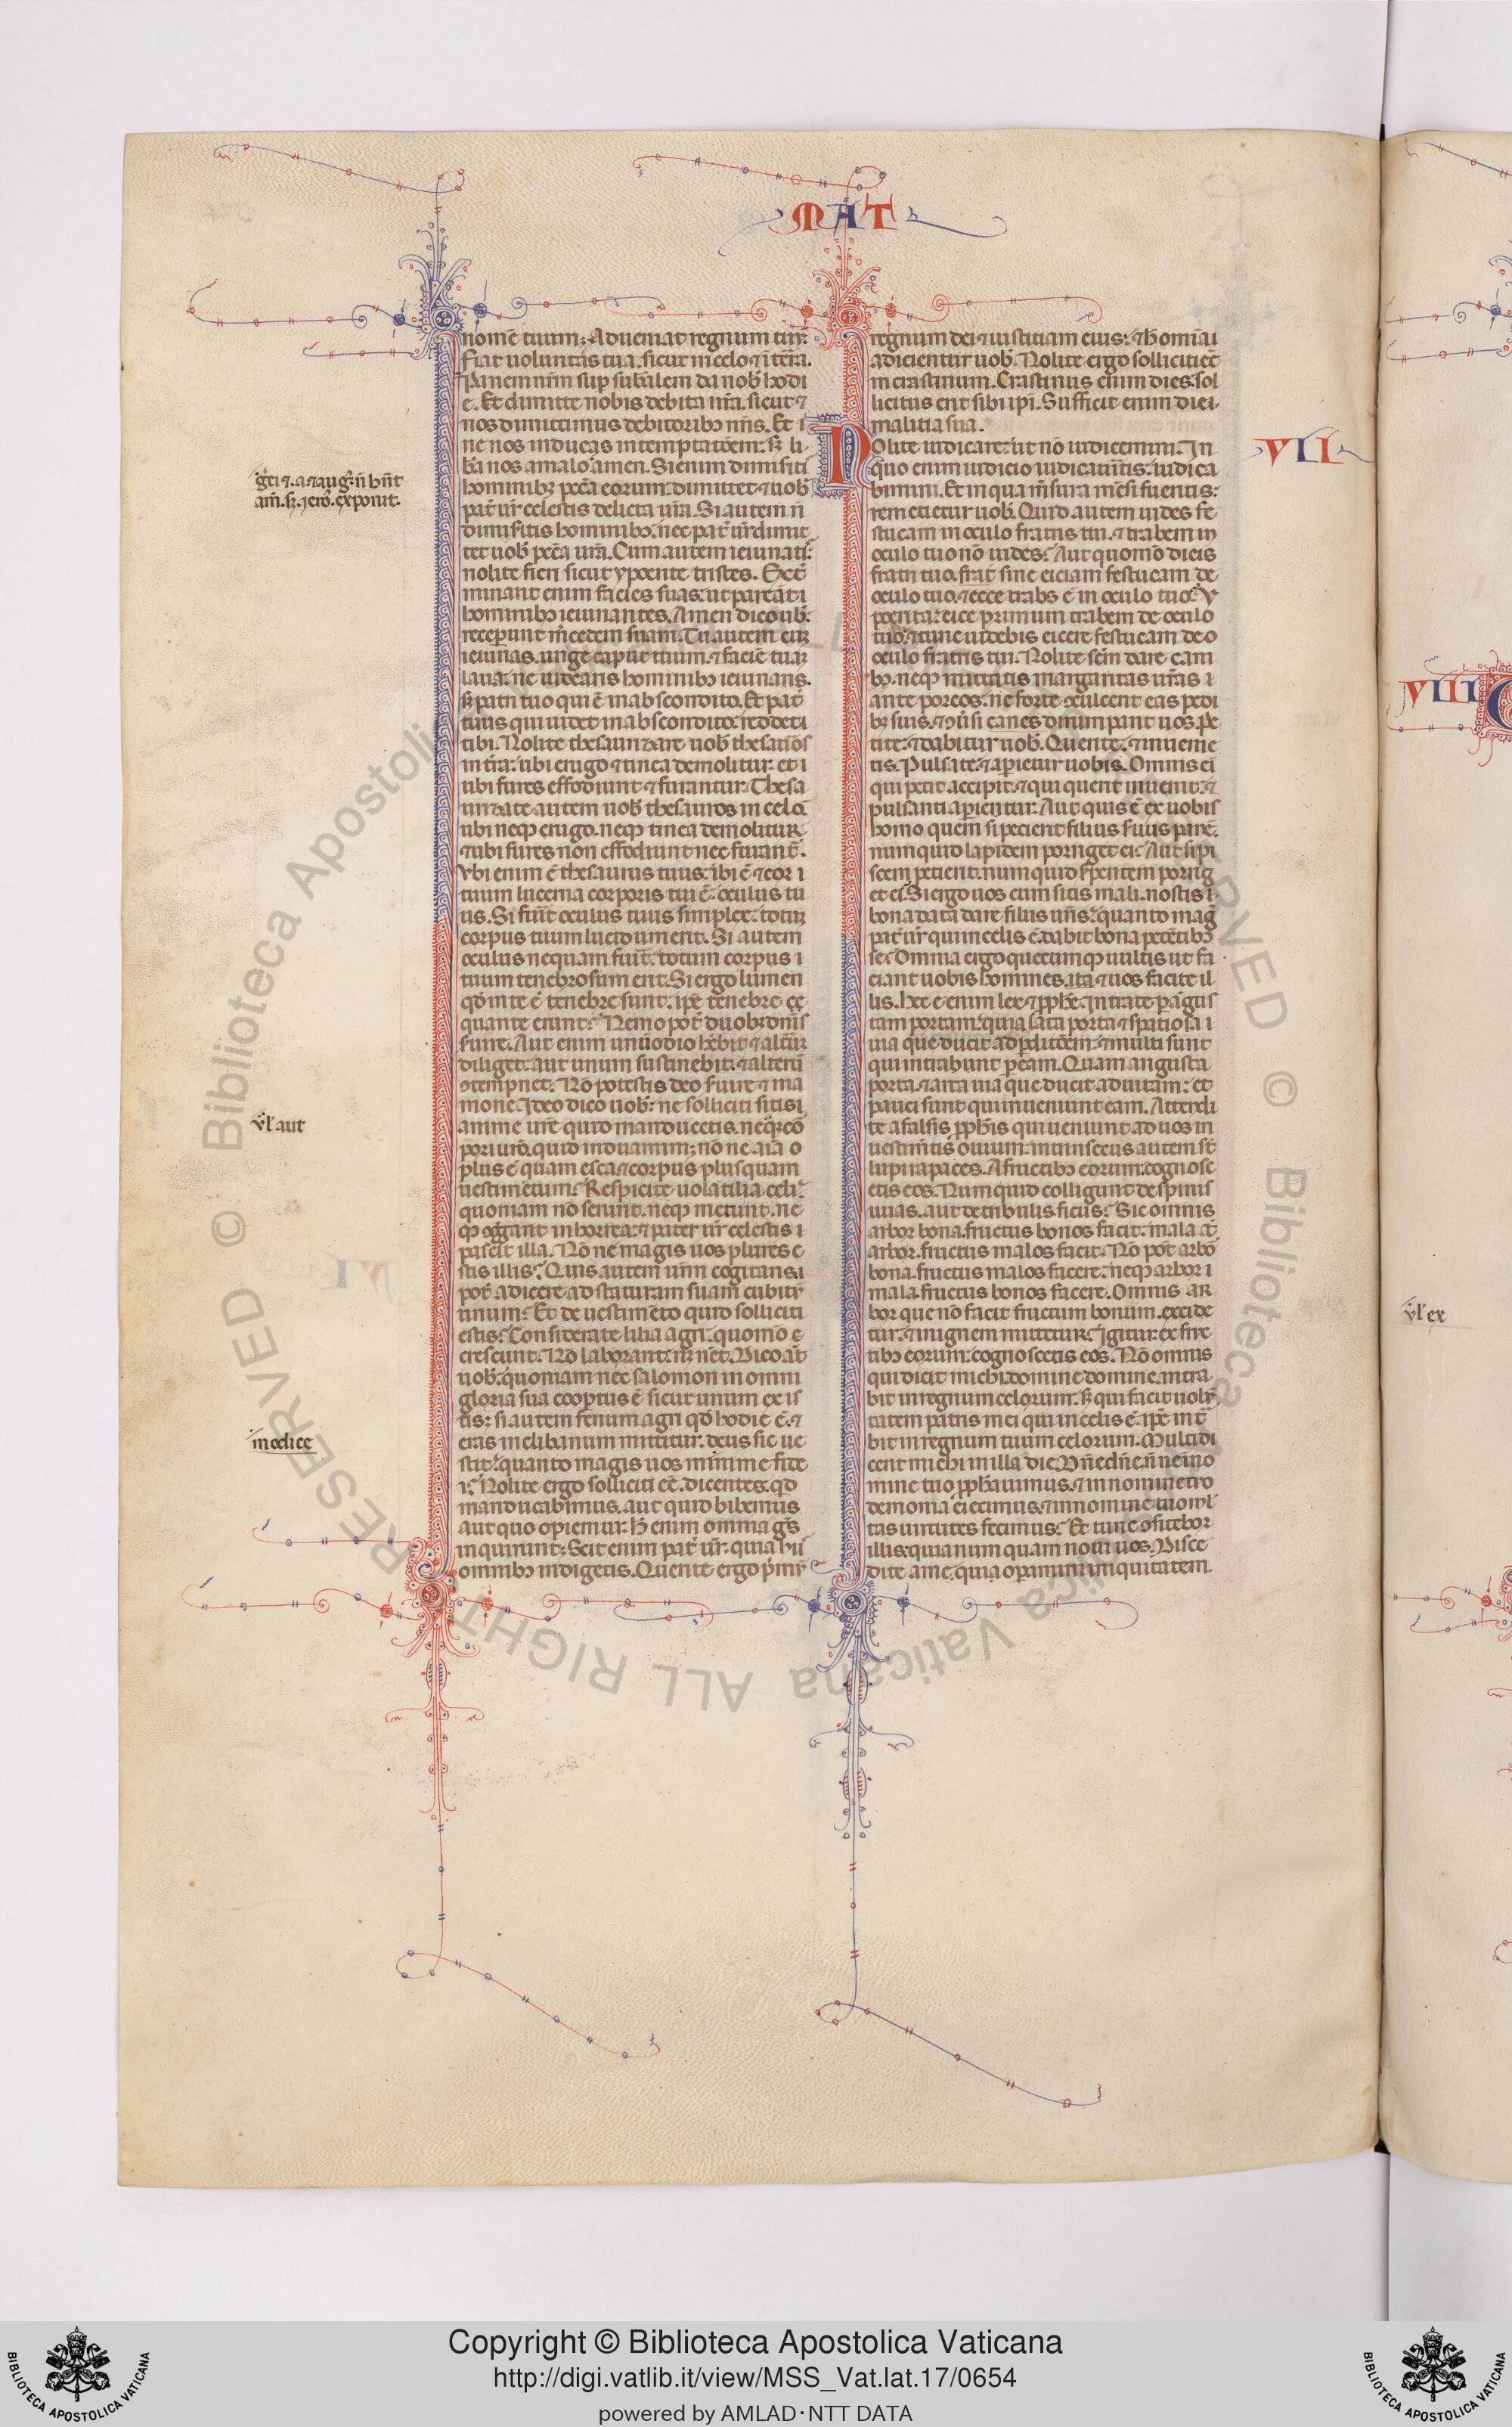 MAT
nomē tuum; Adueniat regnum tuū.
Fiat uoluntas tua. sicut in celo ⁊ ī t̄ra.
Panem nr̄m sup̄ sub̄alem da nob̄ hodi
e. Et dimitte nobis debita nr̄a. sicut ⁊
nos dimittimus debitoribꝫ nr̄is. Et i
ne nos inducas in temptatōem. sꝫ li
b̄a nos a malo amen. Si enim dimisiti
hominibꝫ pcc̄a eorum. dimittet ⁊ uob̄
pat̄ ur̄ celestis delicta ur̄a. Si autem n̄
dimisitis hominibꝫ. nec pat̄ ur̄ dimit
tet uob̄ pcc̄a ur̄a. Cum autem ieiunatis
nolite fieri sicut ypocrite tristes. Ext̄
minant enim facies suas. ut pareāt i
hominibꝫ ieiunantes. Amen dico ub̄.
recep̄unt m̄cedem suam. Tu autem cū
ieiunas. unge caput tuum. ⁊ faciē tuā
laua. ne uidearis hominibꝫ ieiunans.
sꝫ patri tuo qui ē in abscondito. Et pat̄
tuus qui uidet in abscondito. reddet i
tibi. Nolite thesaurizare uob̄ thesauros
in t̄ra. ubi erugo ⁊ tinea demolitur. et i
ubi fures effodiunt ⁊ furantur. Thesa
urizate autem uob̄ thesauros in celo.
ubi neqꝫ erugo. neqꝫ tinea demolitur
⁊ ubi fures non effodiunt nec furant̄.
Vbi enim ē thesaurus tuus. ibi ē ⁊ cor i
tuum lucerna corporis tui ē. oculus tu
us. Si fu̅it oculus tuus simplex. totum
corpus tuum lucidum erit. Si autem
oculus nequam fu̅it. totum corpus i
tuum tenebrosum erit. Si ergo lumen
qd̄ in te ē tenebre sunt. ip̄e tenebre
quante erunt? Nemo pot̄ duobꝫ dn̄is
s̄uire. Aut enim unū odio hēbit ⁊ alt̄um
diliget. aut unum sustinebit ⁊ alterū
ꝯtempnet. Nō potestis deo s̄uire ⁊ ma
mone. Ideo dico uob̄. ne solliciti sitis i
anime ur̄e quid manducetis. neqꝫ cō
pori ur̄o. quid induamini; nōne aīa
plus ē quam esca. ⁊ corpus plusquam
uestimētum. Respicite uolatilia celi.
quoniam nō serunt. neqꝫ metunt. ne
qꝫ ꝯg̅gant in horrea. ⁊ pater ur̄ celestis i
pascit illa. Nōne magis uos pluris e
stis illis? Quis autem ur̄m cogitans i
pot̄ adicere ad staturam suam cubitū
unum? Et de uestimēto quid solliciti
estis? Considerate lilia agri. quomō
crescunt. Nō laborant. neqꝫ nēt. Dico aūt
uob̄. quoniam nec salomon in omni
gloria sua coop̄tus ē sicut unum ex is
tis: si autem fenum agri qd̄ hodie ē. ⁊
cras in clibanum mittitur. deus sic ue
stit. quanto magis uos minime fide
i? Nolite ergo solliciti eē. dicentes. qd
manducabimus. aut quid bibemus
aut quo opiemur. H̄ enim omnia gēs
inquirunt; Scit enim pat̄ ur̄. quia
omnibꝫ indigetis. Querite ergo p̄mū
regnum dei ⁊ iustitiam eius. ⁊ h̄ omīa i
adicientur uob̄. Nolite ergo solliciti eē
in crastinum. Crastinus enim dies. sol
licitus erit sibi ip̄i. Sufficit enim diei
malitia sua.
Nolite iudicare. ut nō iudicemini. In
quo enim iudicio iudicau̅itis. iudica
bimini. Et in qua m̄sura mēsi fueritis:
remetietur uob̄. Quid autem uides fe
stucam in oculo fratris tui. ⁊ trabem in
oculo tuo nō uides? Aut quomō dicis
fratri tuo. frat̄ sine eiciam festucam de
oculo tuo. ⁊ ecce trabs ē in oculo tuo? Y
pocrita. eice primum trabem de oculo
tuo. ⁊ tunc uidebis eicere festucam de o
oculo fratris tui. Nolite sc̄m dare cani
bꝫ. neqꝫ mittatis margaritas ur̄as i
ante porcos. ne forte ꝯculcent eas pedi
bꝫ suis. ⁊ ꝯu̅si canes dirumpant uos. Pe
tite. ⁊ dabitur uob̄. Querite. ⁊ inuenie
tis. Pulsate. ⁊ ap̄ietur uobis. Omnis ei
qui petit accipit. ⁊ qui querit inuenit. ⁊
pulsanti ap̄ientur. Aut quis ē ex uobis
homo quem si pecierit filius suus panē.
numquid lapidem porriget ei? Aut si pi
scem petierit. num quid s̄pentem porrig
et ei. Si ergo uos cum sitis mali. nostis i
bona data dare filiis ur̄is. quanto mag̅
pat̄ ur̄ qui in celis ē. dabit bona petētibꝫ
se? Omnia ergo quecumqꝫ uultis ut fa
ciant uobis homines. ita ⁊ uos facite il
lis. Hec ē enim lex ⁊ pp̄he. Intrate p̄ angus
tam portam. quia lata porta ⁊ spatiosa i
uia que ducit ad p̄ditōem. ⁊ multi sunt
qui intrabunt p̄ eam. Quam angusta
porta. ⁊ arta uia que ducit ad uitam. et
pauci sunt qui inueniunt eam. Attendi
te a falsis pp̄his qui ueniunt ad uos in
uestim̄tis ouium. intrinsecus autem st̄
lupi rapaces. A fructibꝫ eorum. cognosc
etis eos. Num quid colligunt de spinis
uuas. aut de tribulis ficus? Sic omnis
arbor bona. fructus bonos facit. mala aūt
arbor. fructus malos facit. Nō pot̄ arbō
bona. fructus malos facere. neqꝫ arbor i
mala fructus bonos facere. Omnis ar
bor que nō facit fructum bonum. excide
tur. ⁊ in ignem mittetur. Igitur ex fruc
tibꝫ eorum. cognoscetis eos. Nō omnis
qui dicit michi. domine domine. intra
bit in regnum celorum. sꝫ qui facit uolū
tatem patris mei qui in celis ē. ip̄e int̄
bit in regnum tuum celorum. Multi di
cent michi in illa die. Dn̄e dn̄e. n̄ne ī no
mine tuo pp̄hauimus. ⁊ in nomine tuo
demonia eiecimus. ⁊ in nomine tuo ml̄
tas uirtutes fecimus? Et tunc ꝯfitebor
illis. quia num quam noui uos. Disce
dite a me. quia op̄amini iniquitatem.
VII
am̄. sꝫ iero. exponit.
ul̄ aut
modice
VIII
ul̄ ex
Copyright © Biblioteca Apostolica Vaticana
http://digi.vatlib.it/view/MSS_Vat.lat.17/0654
powered by AMLAD·NTT DATA
BIBLIOTECA APOSTOLICA VATICANA
BIBLIOTECA APOSTOLICA VATICANA